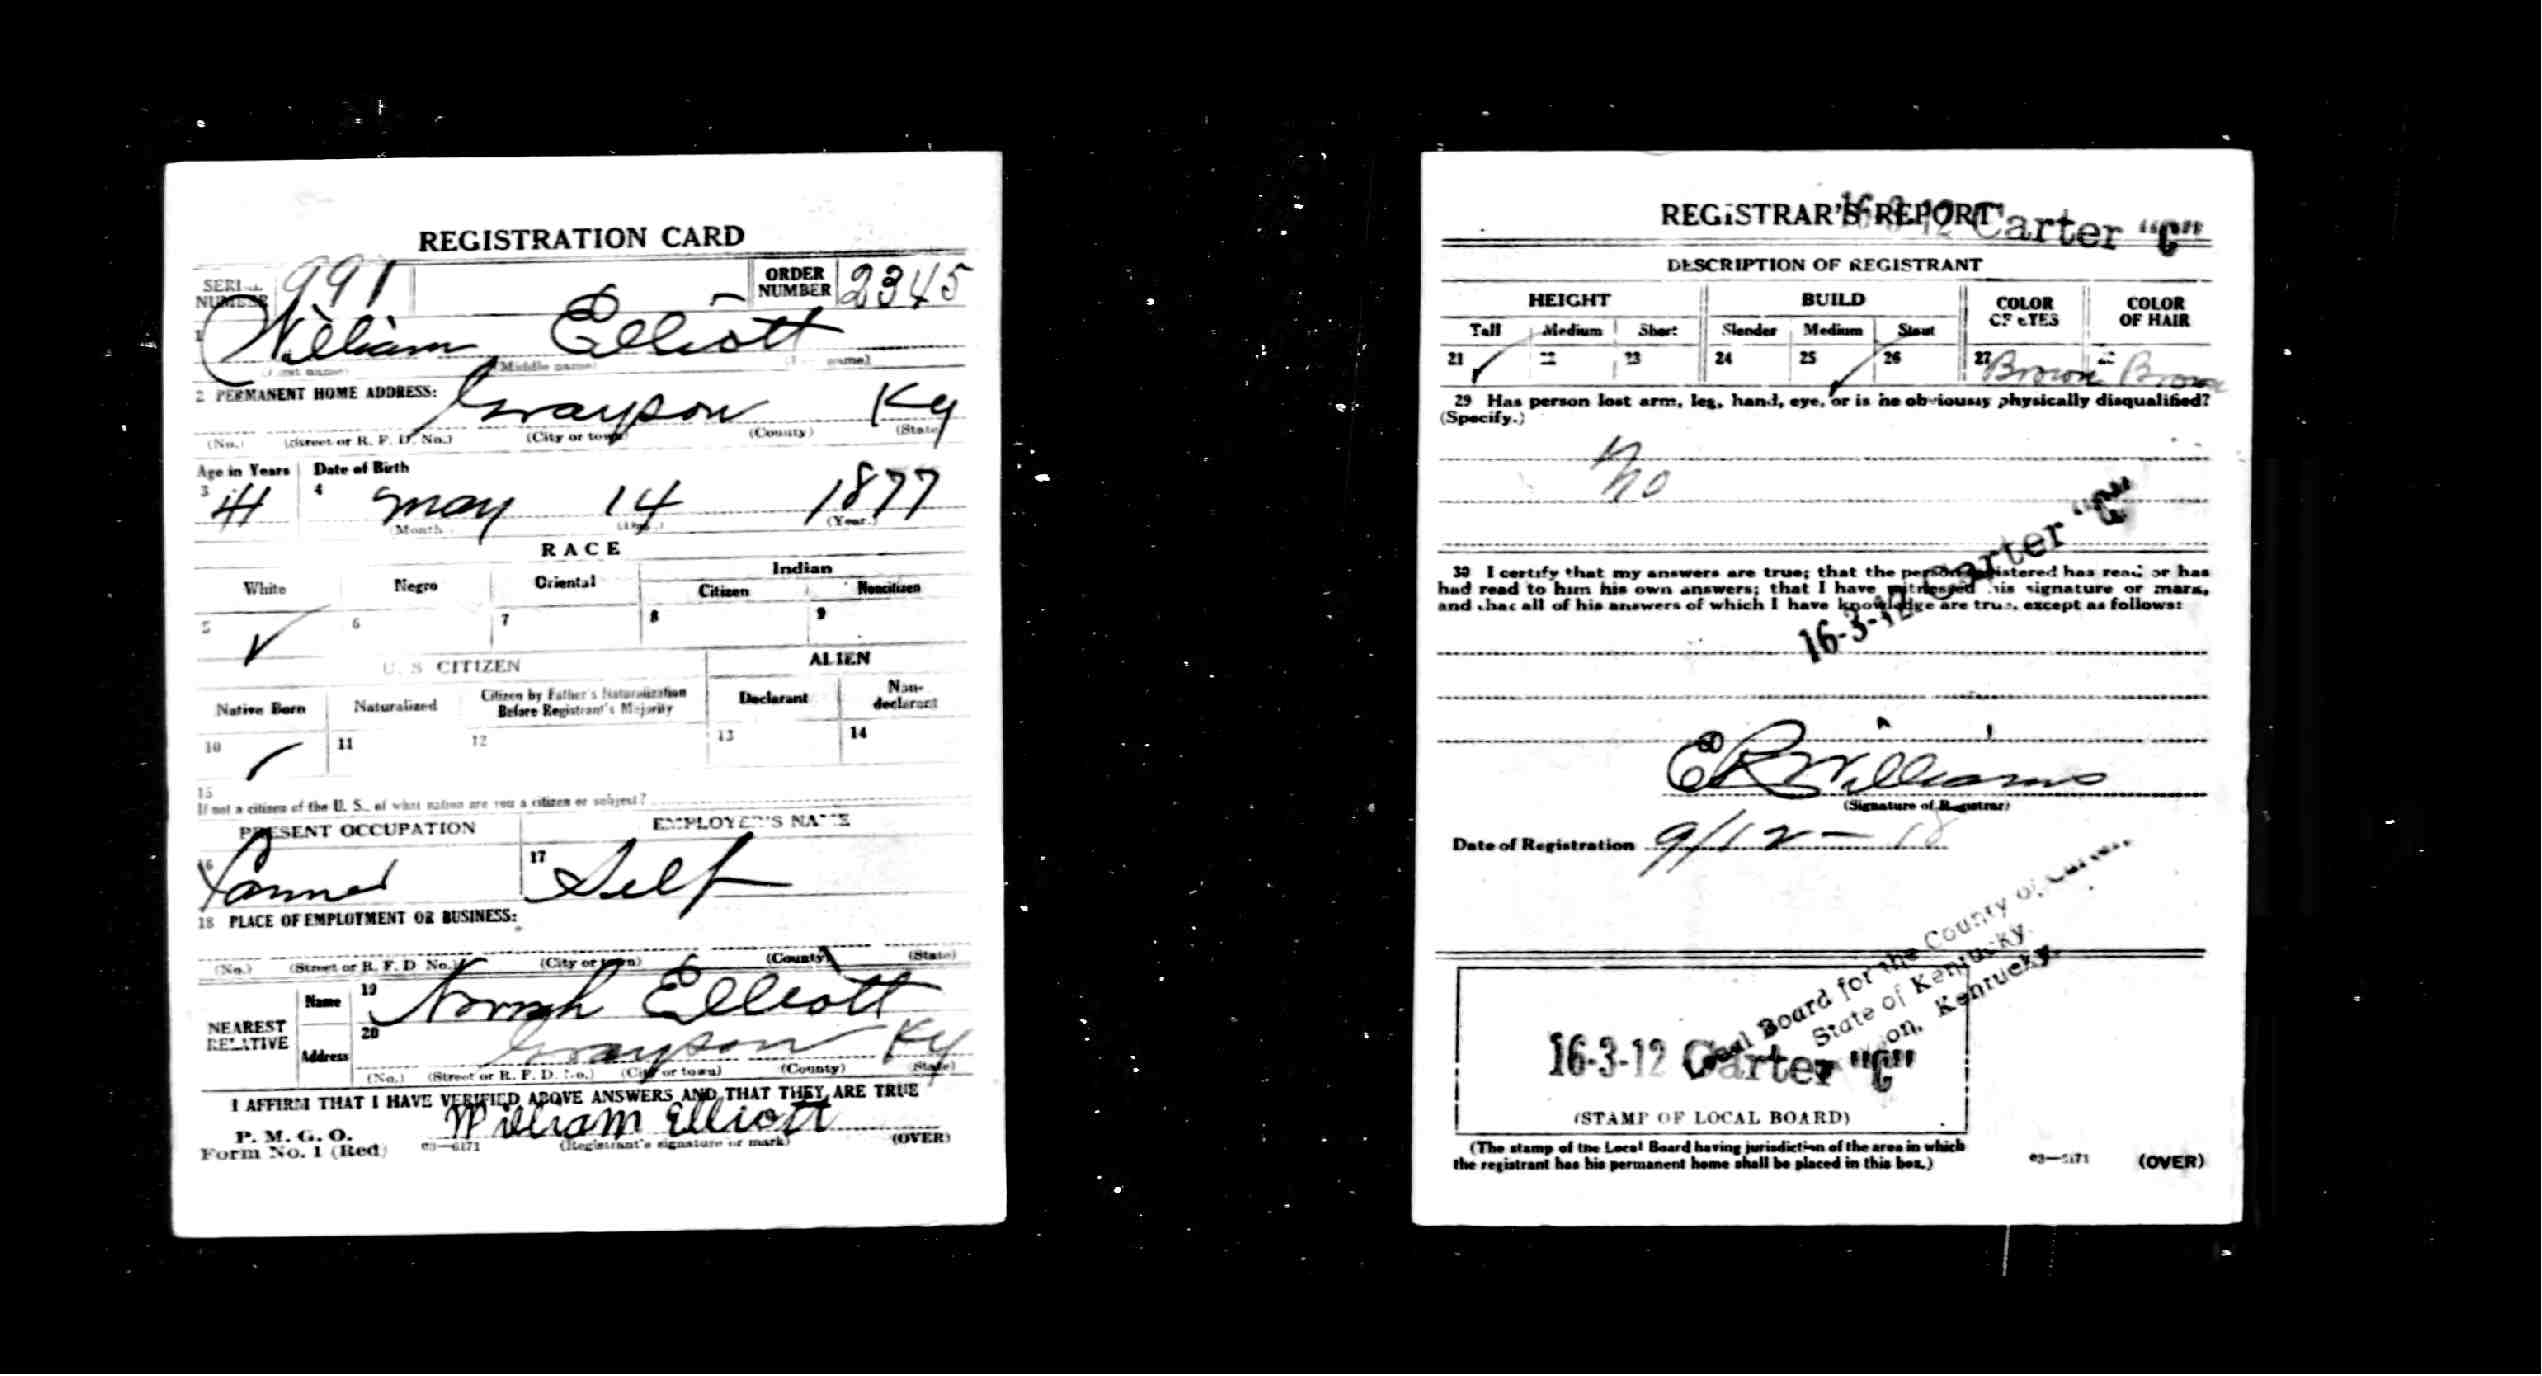 REGISTRATION CARD
SERIAL NUMBER 991 ORDER NUMBER 2345
1 William Elliott
(First name) (Middle name) (Last name)
2 PERMANENT HOME ADDRESS:
Grayson Ky
(No.) (Street or R. F. D. No.) (City or town) (County) (State)
Age in Years Date of Birth
3 41 4 May 14 1877
(Month) (Day.) (Year.)
RACE
White Negro Oriental Indian
Citizen Noncitizen
5 ✓ 6 7 8 9
U. S. CITIZEN ALIEN
Native Born Naturalized Citizen by Father's Naturalization Before Registrant's Majority Declarant Non-declarant
10 ✓ 11 12 13 14
15
If not a citizen of the U. S., of what nation are you a citizen or subject?
PRESENT OCCUPATION EMPLOYER'S NAME
16 17 Self
18 PLACE OF EMPLOYMENT OR BUSINESS:
(No.) (Street or R. F. D. No.) (City or town) (County) (State)
NEAREST RELATIVE
Name 19 Elliott
Address 20 Grayson Ky
(No.) (Street or R. F. D. No.) (City or town) (County) (State)
I AFFIRM THAT I HAVE VERIFIED ABOVE ANSWERS AND THAT THEY ARE TRUE
P. M. G. O.
Form No. 1 (Red) 03—6171 William Elliott
(Registrant's signature or mark) (OVER)
REGISTRAR'S REPORT
16-3-12 Carter "C"
DESCRIPTION OF REGISTRANT
HEIGHT BUILD COLOR OF EYES COLOR OF HAIR
Tall Medium Short Slender Medium Stout
21 ✓ 22 23 24 25 ✓ 26 27 Brown 28 Brown
29 Has person lost arm, leg, hand, eye, or is he obviously physically disqualified?
(Specify.)
No
16-3-12 Carter "C"
30 I certify that my answers are true; that the person registered has read or has
had read to him his own answers; that I have witnessed his signature or mark,
and that all of his answers of which I have knowledge are true, except as follows:
E R Williams
(Signature of Registrar)
Date of Registration 9/12 — 18
Local Board for the County of Carter,
State of Kentucky.
Kentucky.
16-3-12 Carter "C"
(STAMP OF LOCAL BOARD)
(The stamp of the Local Board having jurisdiction of the area in which
the registrant has his permanent home shall be placed in this box.)
03—6171 (OVER)